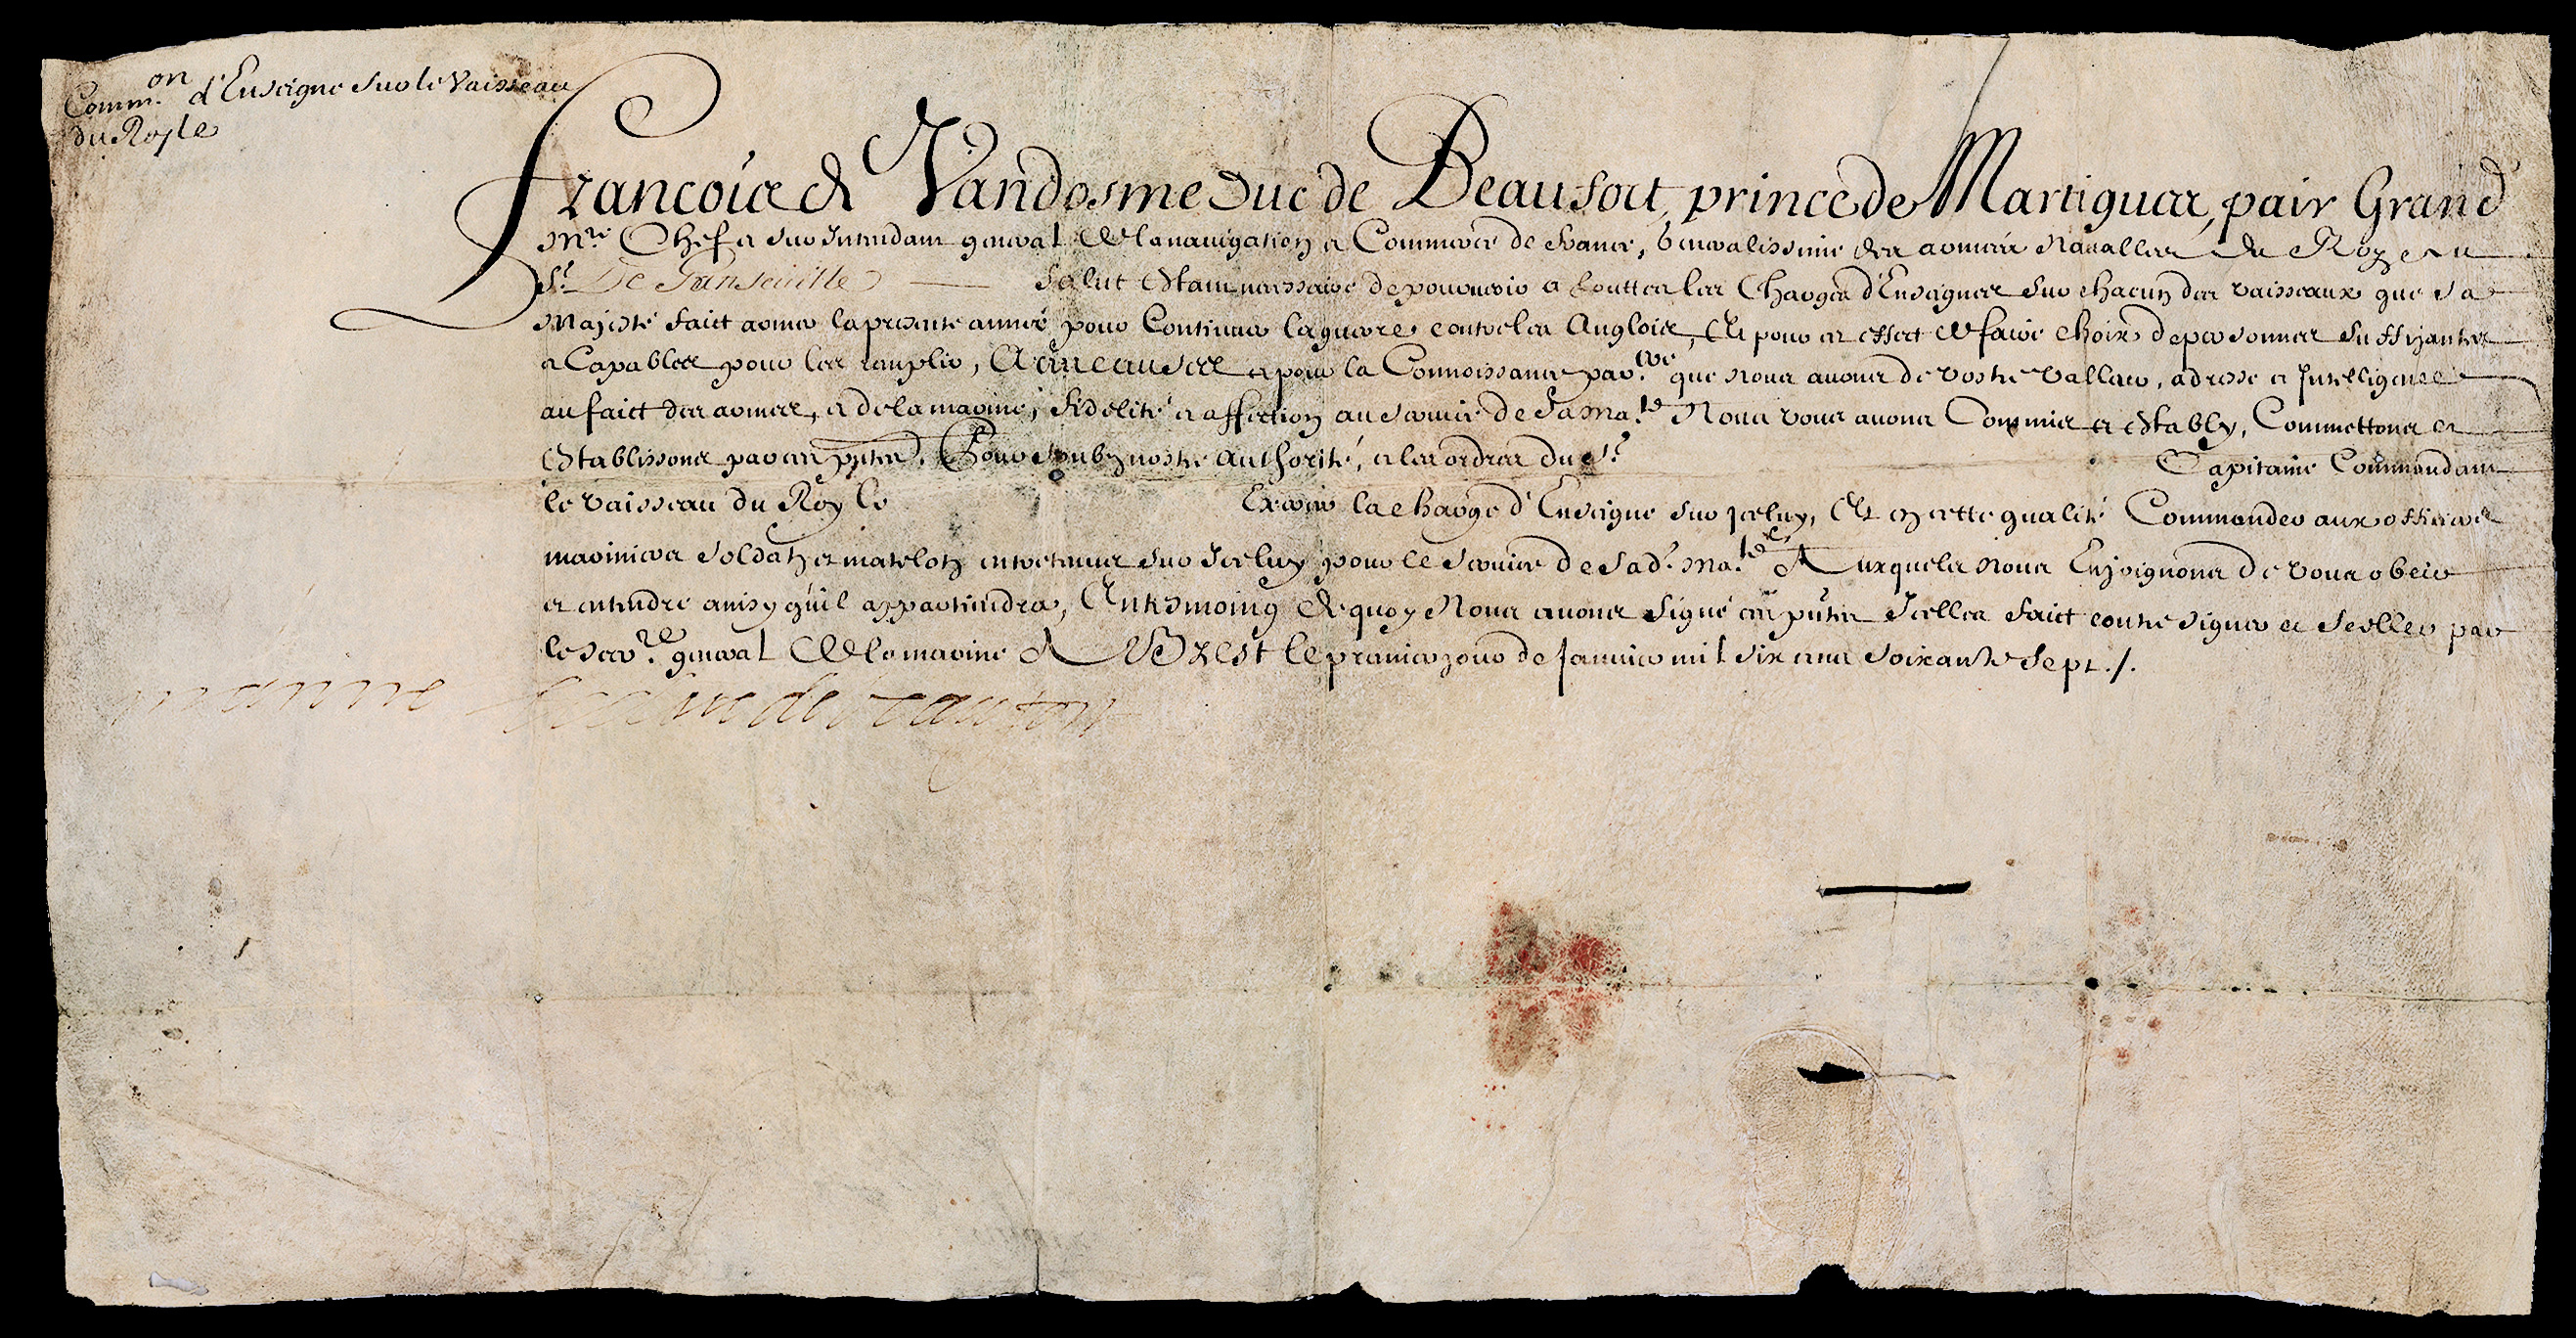 Comm.on d'Enseigne sur le Vaisseau
du Roy le
François de Vandosme Duc de Beaufort, prince de Martigues, pair Grand
Mre. Chef et sur Intendant general de la nauigation et Commerce de france, Generalissime des armées Naualles du Roy au
Sr. De Ganseuille Salut Estant necessaire de pouruoir a touttes les Charges d'Enseignes sur chacun des vaisseaux que sa
Majesté faict armer la presente année pour Continuer la guerre contre les Anglois, Et pour cet effect de faire choix de personnes suffizantes
et Capables pour les remplir, A ces causes et pour la Connoissance par.re que nous auons de vostre valleur, adresse et Intelligence
au faict des armes, et de la marine, fidelité et affection au seruice de sa Ma.té Nous vous auons Commis et estably, Commettons et
establissons par ces pntes. Pour soubz nostre authorité, et les ordres du Sr. Capitaine Commandant
le vaisseau du Roy le Exercer la charge d'Enseigne sur Iceluy, Et en cette qualité Commander aux officiers
mariniers soldatz et matelotz entretenus sur Iceluy pour le seruice de sad. Ma.té Ausquels nous Enjoignons de vous obeir
et entendre ainsy qu'il appartiendra, En tesmoing de quoy Nous auons signé ces pntes Icelles faict contresigner et seeller par
le secr.re general de la marine A Brest le premier jour de Januier mil six cens soixante sept ./.